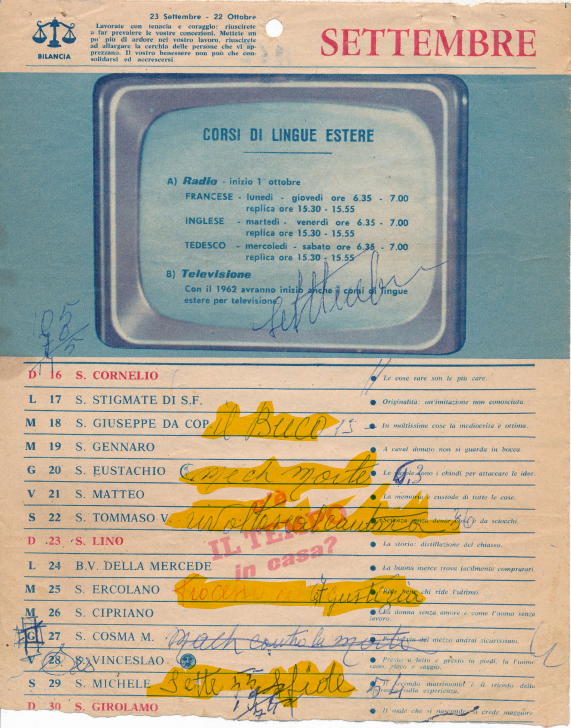 23 Settembre - 22 Ottobre
Lavorate con tenacia e coraggio: riuscirete
a far prevalere le vostre concezioni. Mettete un
po' più di ardore nel vostro lavoro, riuscirete
ad allargare la cerchia delle persone che vi ap-
prezzano. Il vostro benessere non può che con-
solidarsi ed accrescersi
BILANCIA
SETTEMBRE
CORSI DI LINGUE ESTERE
A) Radio - inizio 1 ottobre
FRANCESE - lunedì - giovedì ore 6.35 - 7.00
replica ore 15.30 - 15.55
INGLESE - martedì - venerdì ore 6.35 - 7.00
replica ore 15.30 - 15.55
TEDESCO - mercoledì - sabato ore 6.35 - 7.00
replica ore 15.30 - 15.55
B) Televisione
Con il 1962 avranno inizio anche i corsi di lingue
estere per televisione.
D 16 S. CORNELIO Le cose rare son le più care.
L 17 S. STIGMATE DI S.F. Originalità: un'imitazione non conosciuta.
M 18 S. GIUSEPPE DA COP. il Buco 15 In moltissime cose la mediocrità è ottima.
M 19 S. GENNARO A caval donato non si guarda in bocca.
G 20 S. EUSTACHIO match morte 63 i chiodi per attaccare le idee.
V 21 S. MATTEO La memoria è custode di tutte le cose.
S 22 S. TOMMASO V. da sciocchi.
D 23 S. LINO La storia: distillazione del chiasso.
IL TEMPO
in casa?
L 24 B.V. DELLA MERCEDE La buona merce trova facilmente compratori.
M 25 S. ERCOLANO Ride bene chi ride l'ultimo.
M 26 S. CIPRIANO donna senza amore è come l'uomo senza
lavoro.
G 27 S. COSMA M. Match contro la morte del mezzo andrai sicurissimo.
V 28 S. VINCESLAO Presto a letto e presto in piedi, fa l'uomo
sano, ricco e saggio.
S 29 S. MICHELE Sette sfide 64 Il secondo matrimonio è il trionfo della
sulla esperienza.
D 30 S. GIROLAMO